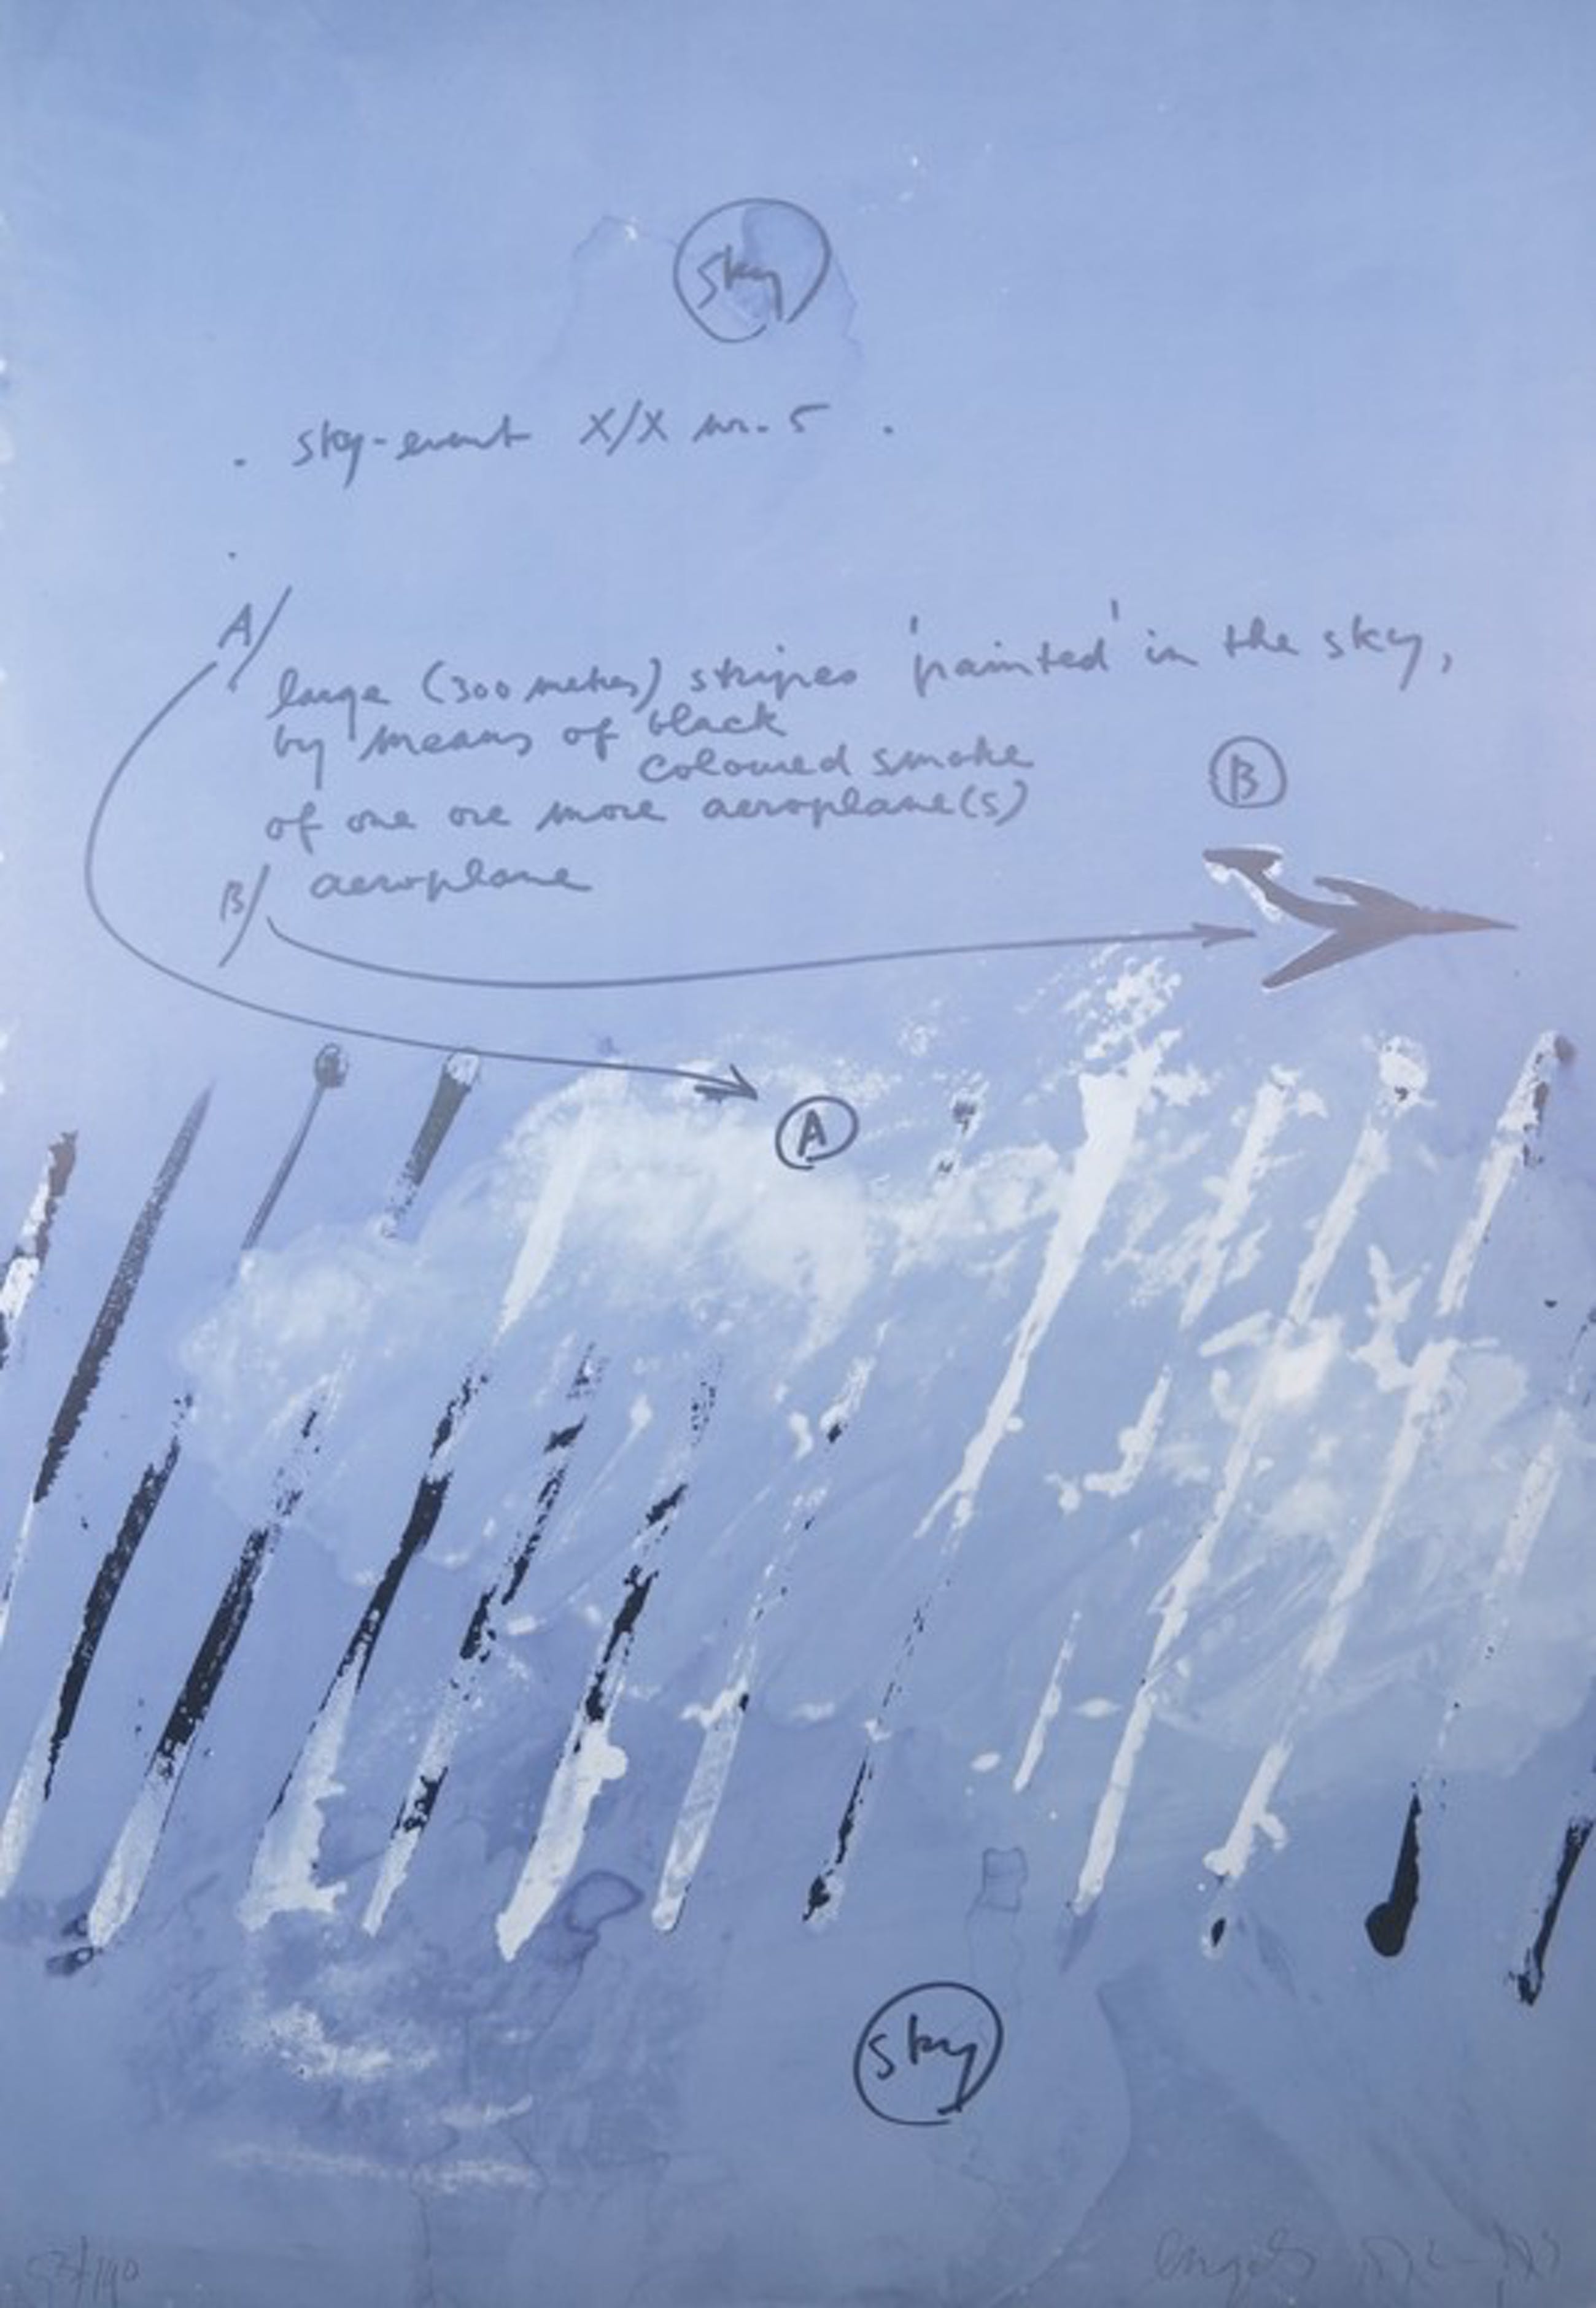 sky
. sky-event X/X nr. 5 .
A/
large (300 metres) stripes 'painted' in the sky,
by means of black
coloured smoke
of one ore more aeroplane(s)
B/ aeroplane
B
A
sky
Engels